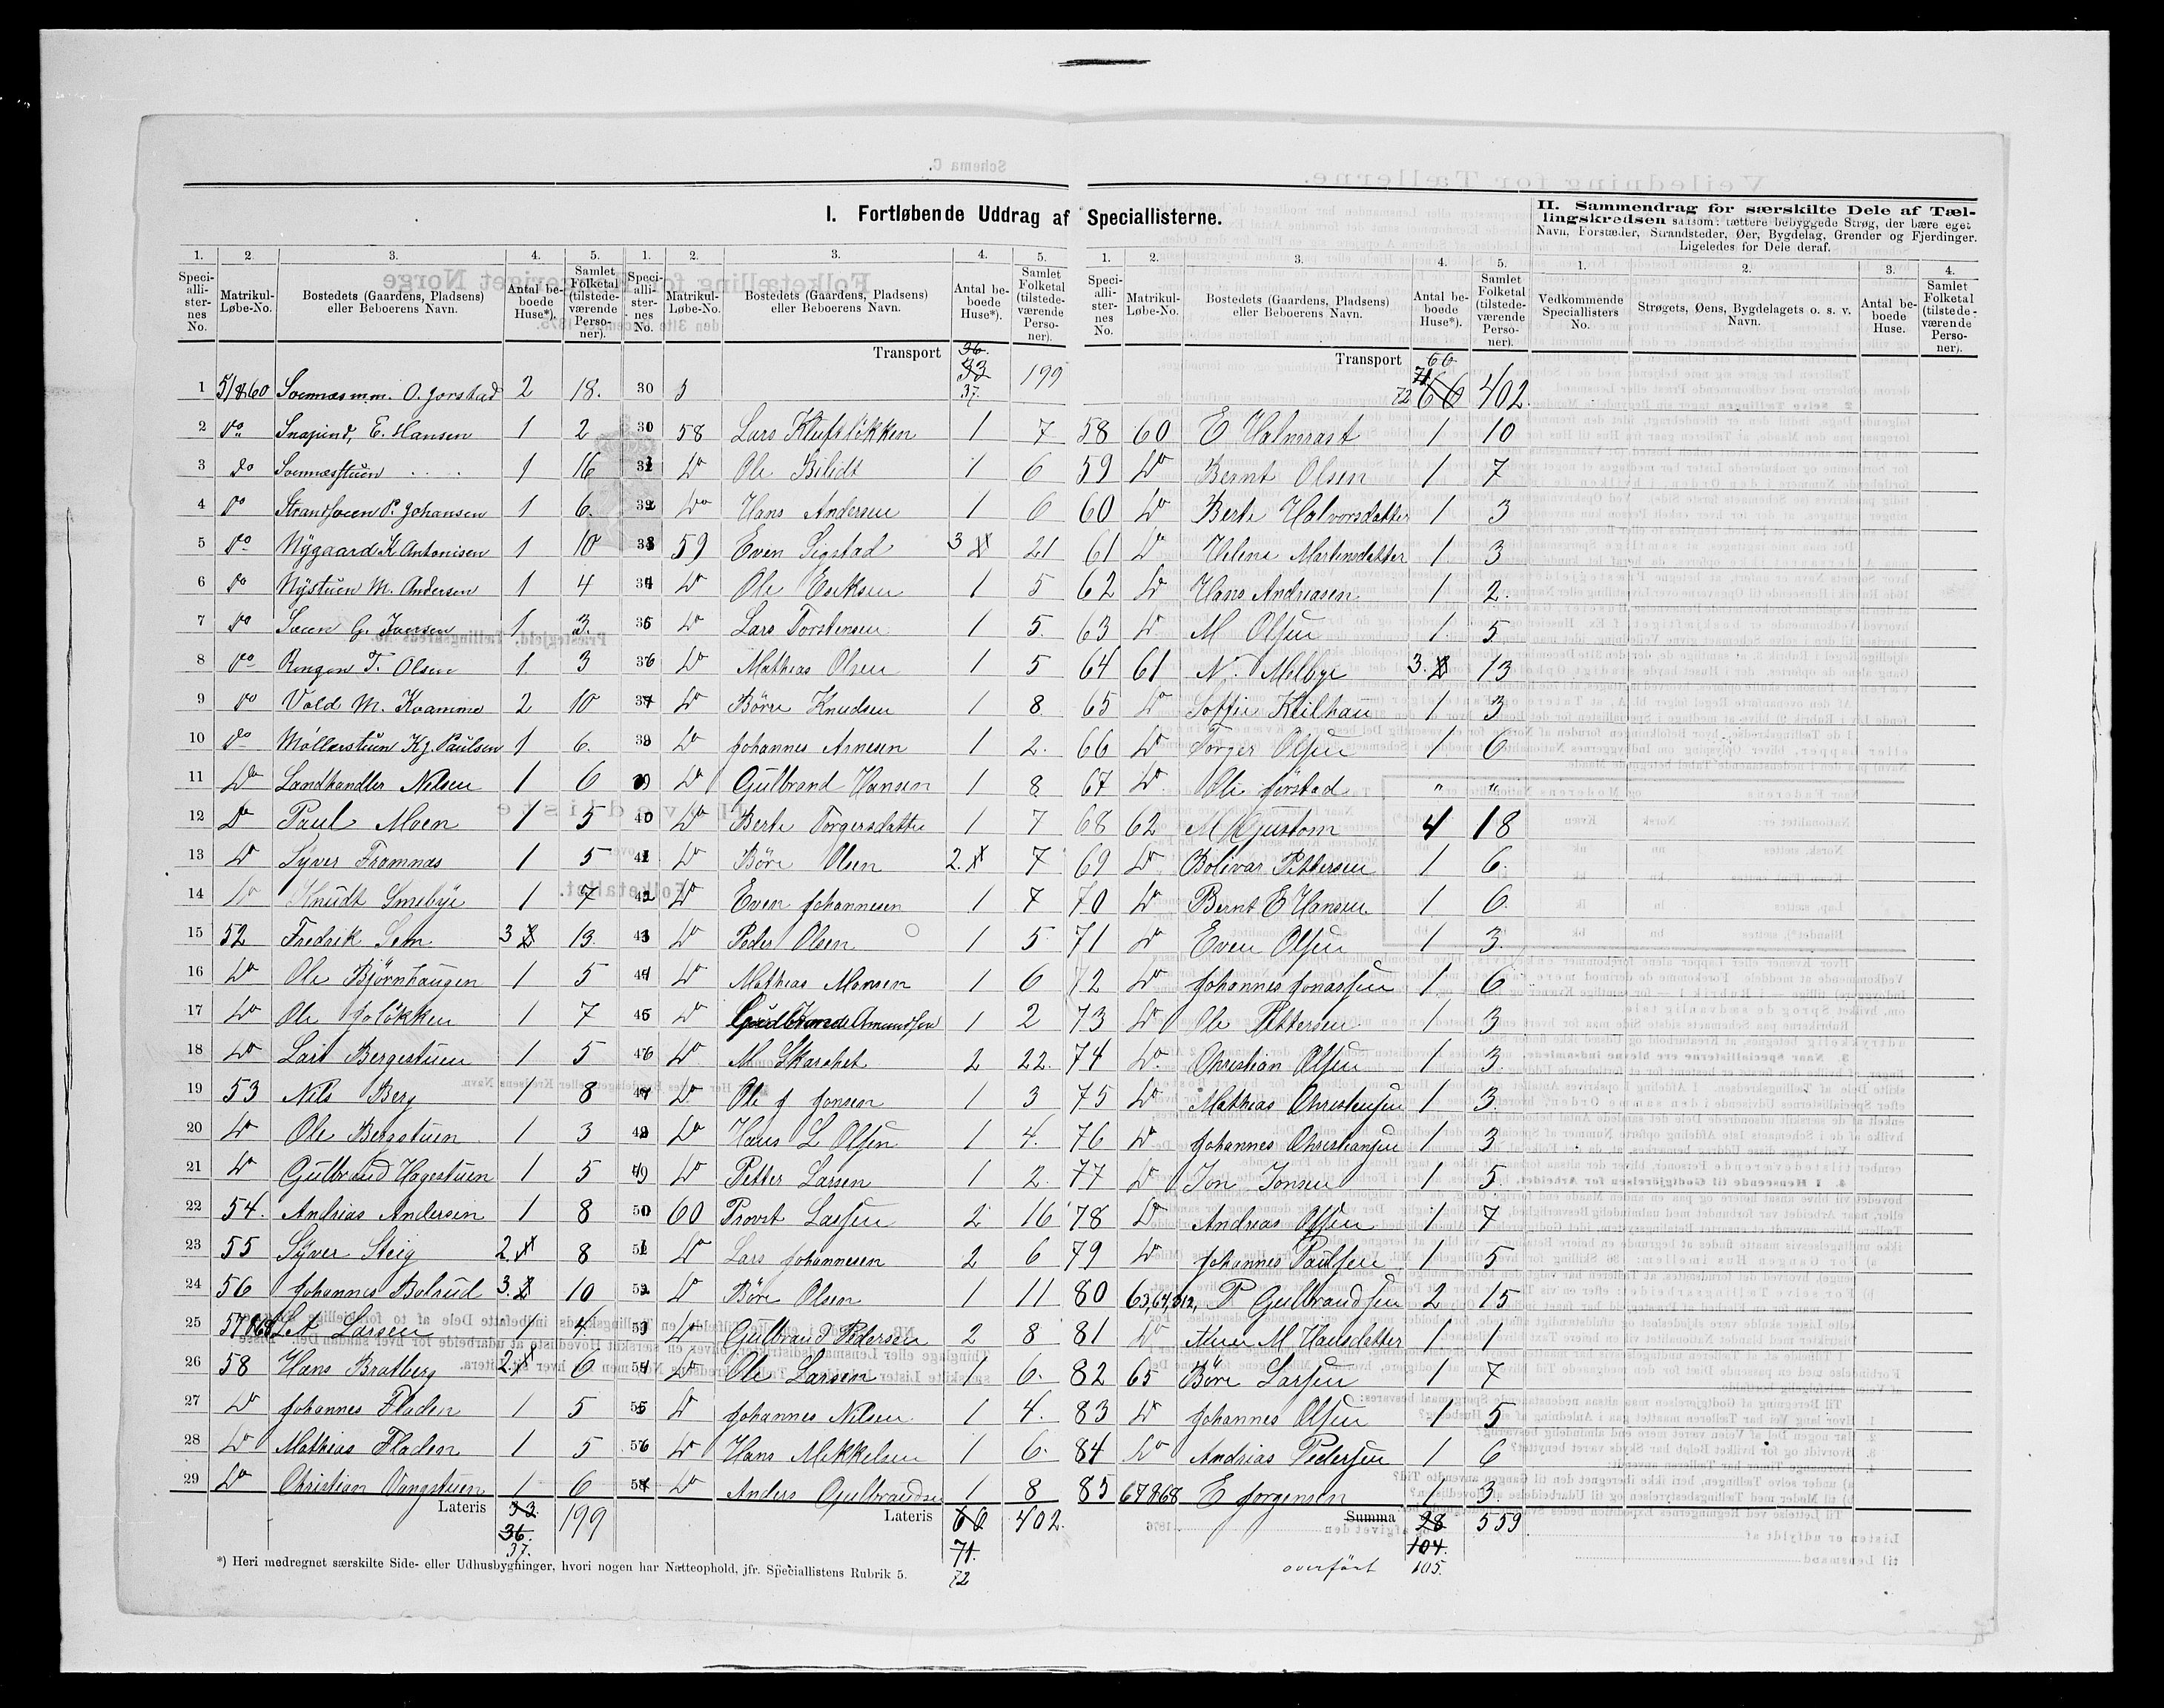 I. Fortløbende Uddrag af Speciallisterne.
II. Sammendrag for særskilte Dele af Tællingskredsen saasom: tættere bebyggede Strøg, der bære eget Navn, Forstæder, Strandsteder, Øer, Bygdelag, Grender og Fjerdinger. Ligeledes for Dele deraf.
1. 2. 3. 4. 5.
Speciallisternes No. Matrikul-Løbe-No. Bostedets (Gaardens, Pladsens) eller Beboerens Navn. Antal beboede Huse*). Samlet Folketal (tilstedeværende Personer).
1 51 & 60 Soennæs m.m. O. Jorstad 2 18.
2 do E. Hansen 1 2
3 do Soennæsstuen 1 16
4 do P. Johansen 1 6.
5 do Nÿgaard K. Antonisen 1 10
6 do Nÿstuen M. Andersen 1 4
7 do G. Iversen 1. 3.
8 do T. Olsen 1. 3
9 do Vold M. Kvamme 2 10
10 do Möllerstuen Kj. Paulsen 1 6.
11 Do Landhandler Nilsen 1 6
12 Do Paul Moen 1 5
13 Do Syver Fromnæs 1 5
14 Do Knudt Smebÿe 1. 7
15 52 Fredrik Sem 3 2 13.
16 Do Ole Björnhaugen 1 5
17 Do Ole Jolökken 1 7
18 Do Bergestuen 1 5
19 53 Nils Berg 1 8
20 Do Ole Bergstuen 1 3
21 Do Gulbrand Hagestuen 1 5
22 54. Andreas Andersen 1 8
23 55 Syver Steig 2. 1 8
24 56 Johannes Bolrud 3. 2 10
25 57 & 68 Larsen 1 4.
26 58 Hans Bratberg 2. 1 6
27 Do Johannes Fladen 1 5
28 Do Mathias Fladen 1 5
29 Do Christian Vangstuen 1 6
Lateris 33. 199
36.
37.
1. 2. 3. 4. 5.
Speciallisternes No. Matrikul-Løbe-No. Bostedets (Gaardens, Pladsens) eller Beboerens Navn. Antal beboede Huse*). Samlet Folketal (tilstedeværende Personer).
Transport 36.
33 199
37.
30 58 Lars Klufslökken 1 7
31 Do Ole Bilidt 1 6
32 Do Hans Andersen 1 6
33 59 Even Sigstad 3 21
34 Do Ole Eriksen 1 5
35 Do Lars Torstensen 1 5.
36 Do Mathias Olsen 1 5
37 Do Börre Knudsen 1 8.
38 Do Johannes Arnesen 1 2.
39 Do Gulbrand Hansen 1 8
40 Do Berte Torgersdatter 1 7
41 Do Böre Olsen 2. 1 7
42 Do Even Johannesen 1 7
43 Do Peder Olsen 1 5
44 Do Mathias Monsen 1 6
45 Do Amundsen 1 2
46 Do M Skarshet 2 22.
47 Do Ole J Jonsen 1 3
48 Do Hans L Olsen 1 4.
49 Do Petter Larsen 1 2.
50 60 Provst Lassen 2 16
51 Do Lars Johannesen 2 6
52 Do Böre Olsen 1 11
53 Do Gulbrand Pedersen 2 8
54 Do Ole Larsen 1 6.
55 Do Johannes Nilsen 1 4.
56 Do Hans Mikkelsen 1 6.
57 Do Anders Gulbrandsen 1 8
Lateris 66 402.
71.
72
1. 2. 3. 4. 5.
Speciallisternes No. Matrikul-Løbe-No. Bostedets (Gaardens, Pladsens) eller Beboerens Navn. Antal beboede Huse*). Samlet Folketal (tilstedeværende Personer).
Transport 66
71
72 66 402.
58 60 E Halmrast 1 10
59 Do Bernt Olsen 1 7
60 Do Berte Halvorsdatter 1 3
61 Do Helene Martensdatter 1 3
62 Do Hans Andreasen 1 2.
63 Do M Olsen 1. 5
64 61 N. Melbye 3. 13
65 Do Soffie Keilhau 1 3
66 Do Torger Olsen 1 6
67 Do Ole Jörstad " "
68 62 M Gjustom 4 18
69 Do Bolivar Pettersen 1 6.
70 Do Bernt E Hansen 1 6.
71 Do Even Olsen 1 3.
72 Do Johannes Jonassen 1. 6
73 Do Ole Pettersen 1 3
74 Do Christian Olsen 1 3.
75 Do Mathias Christensen 1 3.
76 Do Johannes Christiansen 1 3
77 Do Jon Jonsen 1 5.
78 Do Andreas Olsen 1 7
79 Do Johannes Paulsen 1 5
80 63, 64, P Gulbrandsen 2 15
81 Do M Hansdatter 1. 1
82 65 Böre Larsen 1 7
83 Do Johannes Olsen 1 5
84 Do Andreas Pedersen 1 6
85 67 & 68 E Jorgensen 1 3.
Summa 98 559
104.
overfört 105.
1. 2. 3. 4.
Vedkommende Speciallisters No. Strøgets, Øens, Bygdelagets o. s. v. Navn. Antal beboede Huse. Samlet Folketal (tilstedeværende Personer).
*) Heri medregnet særskilte Side- eller Udhusbygninger, hvori nogen har Natteophold, jfr. Speciallistens Rubrik 5.